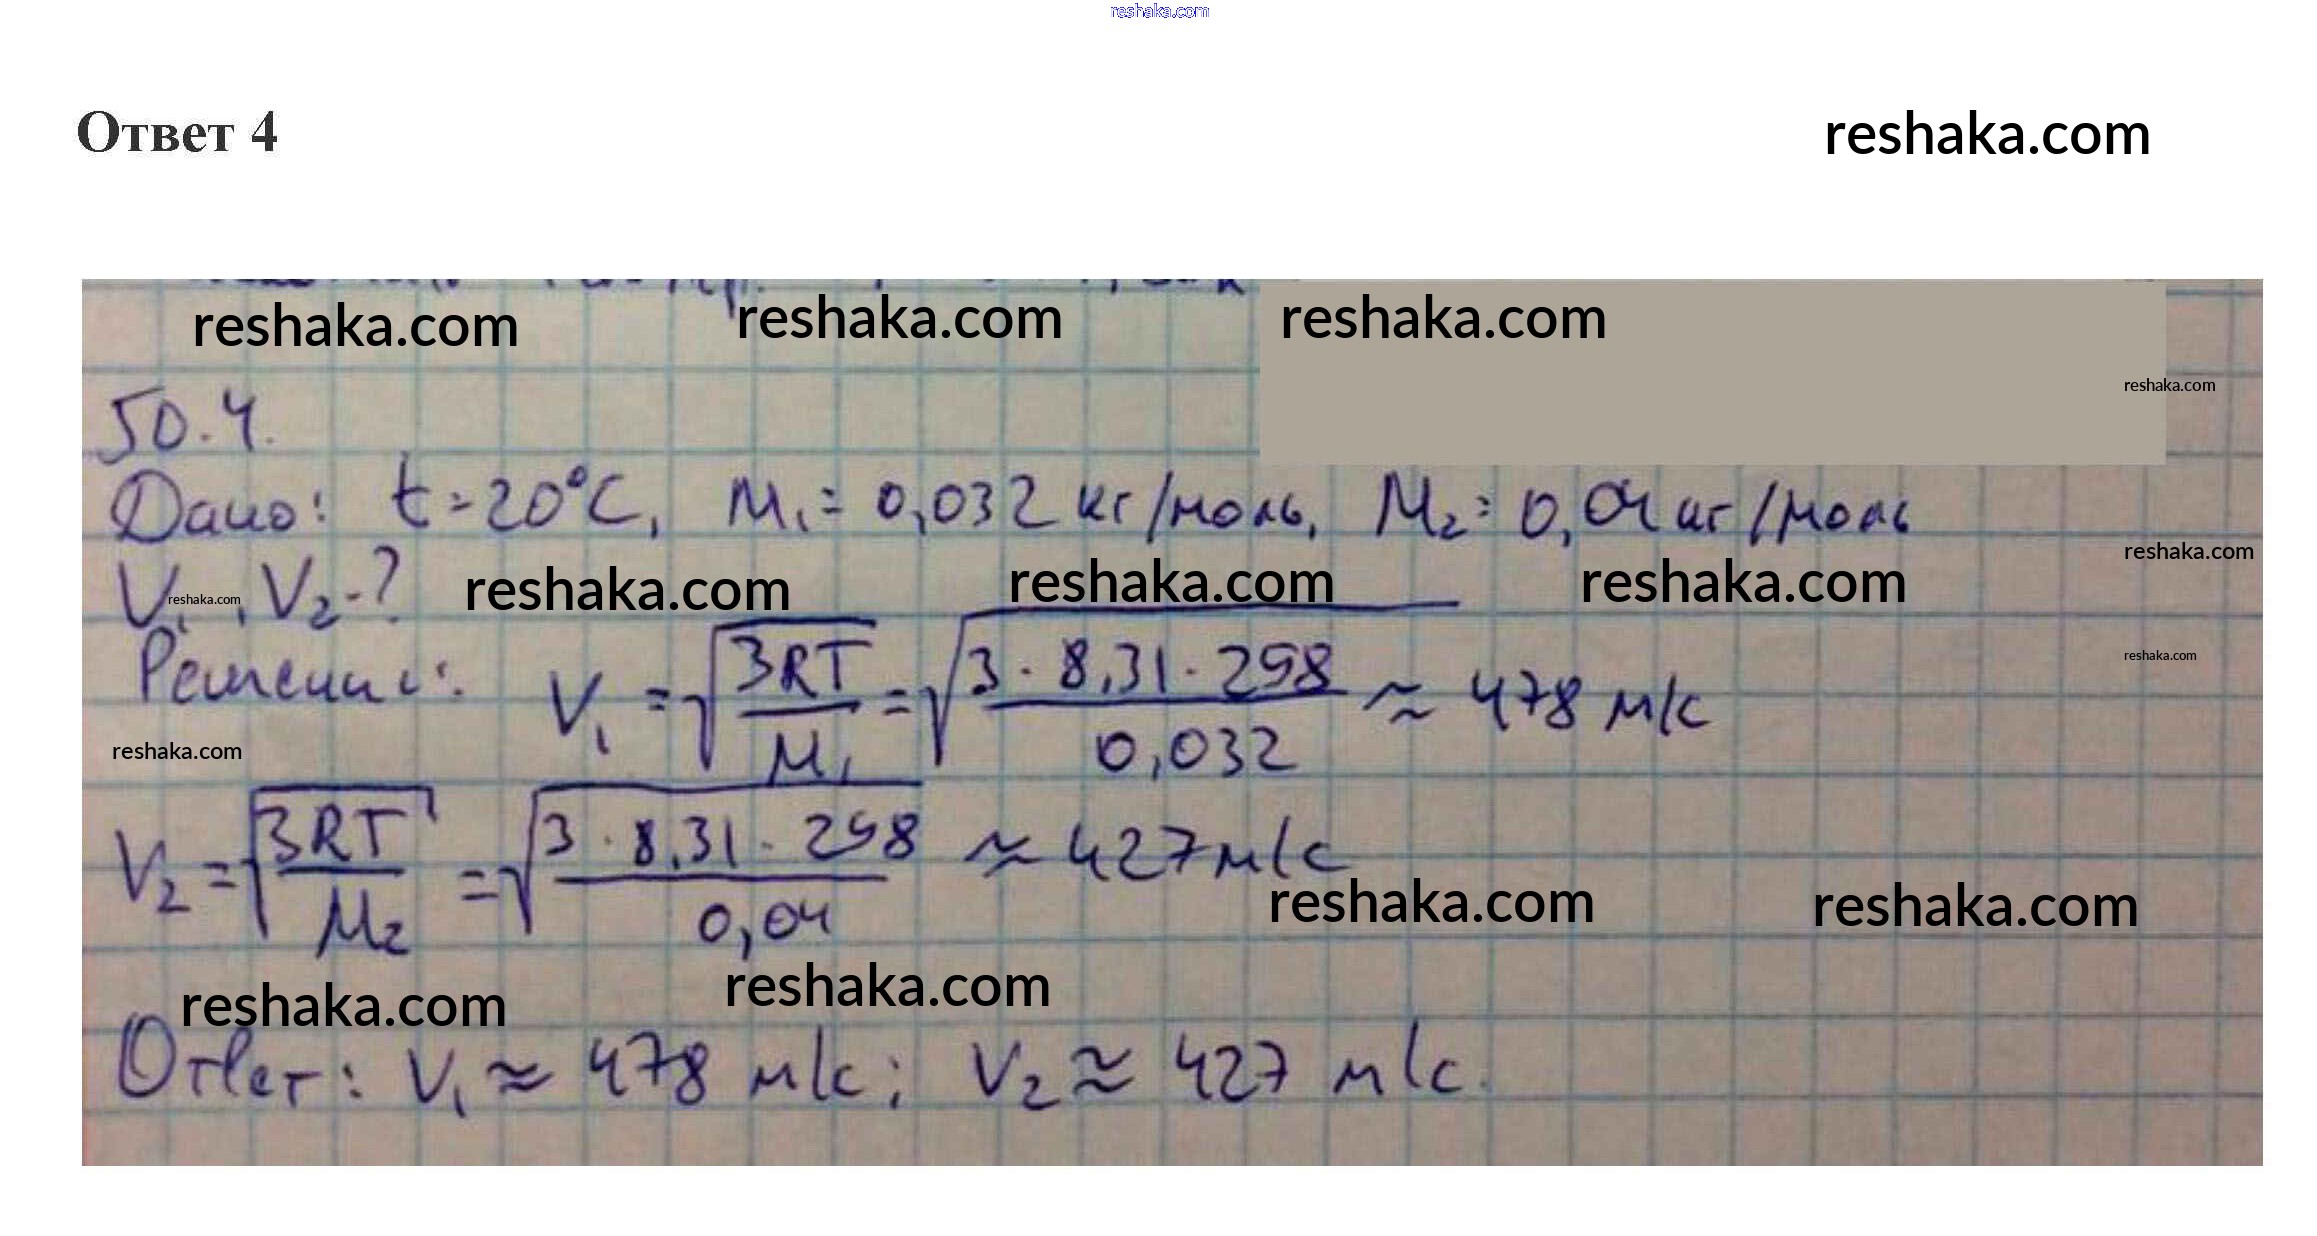 reshaka.com
Ответ 4 reshaka.com
reshaka.com reshaka.com reshaka.com
reshaka.com
50.4.
Дано: t = 20°C, M₁ = 0,032 кг/моль, M₂ = 0,04 кг/моль
reshaka.com
V₁, V₂ - ?
reshaka.com reshaka.com reshaka.com reshaka.com
reshaka.com
Решение: V₁ = √(3RT/M₁) = √(3 · 8,31 · 298/0,032) ≈ 478 м/с
reshaka.com
V₂ = √(3RT/M₂) = √(3 · 8,31 · 298/0,04) ≈ 427 м/с
reshaka.com reshaka.com
reshaka.com reshaka.com
Ответ: V₁ ≈ 478 м/с; V₂ ≈ 427 м/с.